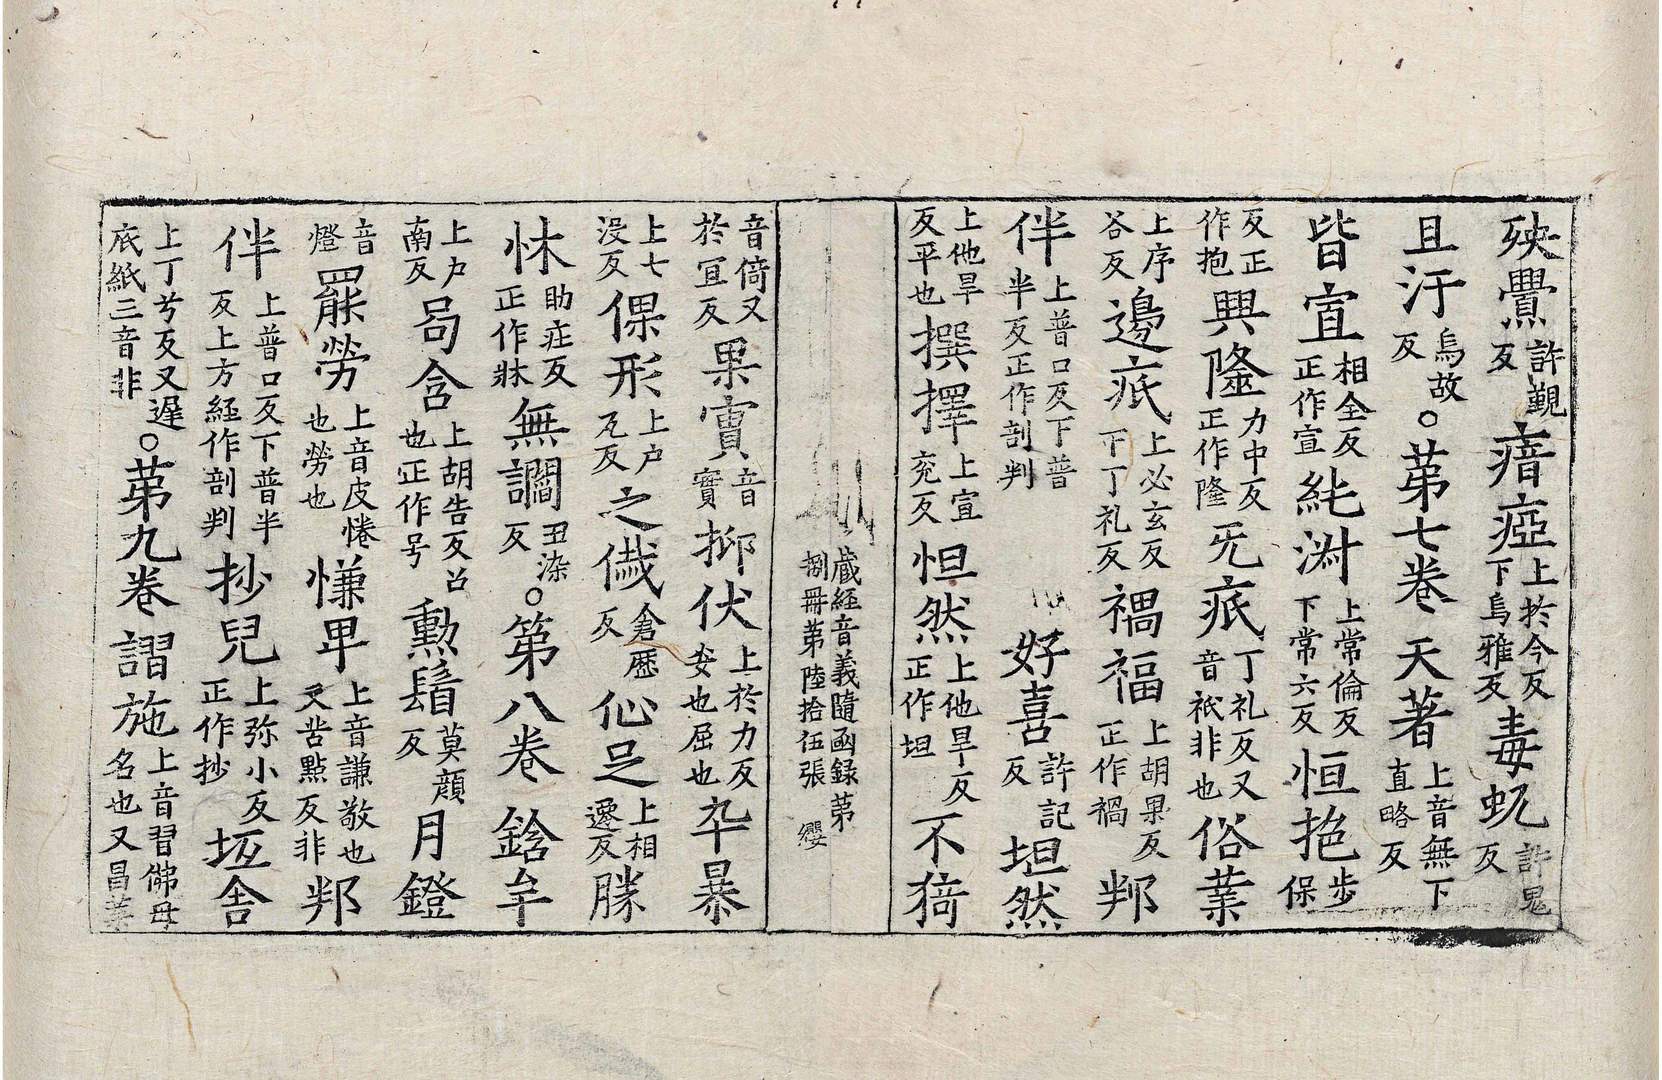 殃舋許覲反瘖瘂上於今反下烏雅反毒虭許鬼反
且汙烏故反。苐七卷天著上音無下直略反
皆宣相全反正作宣純淋上常倫反下常六反恒抱步保
反正作抱興隆力中反正作隆旡疧丁礼反又音衹非也俗業
上序谷反邊疧上必玄反下丁礼反禍福上胡果反正作禍判
伴上普口反下普半反正作剖判好喜許記反坦然
上他旱反平也撰擇上宣兖反怛然上他旱反正作坦不猗
藏經音義隨函録苐捌冊苐陸拾伍張 纓
音倚又於冝反果實音實抑伏上於力反安也屈也卒暴
上七没反倮形上户瓦反之儎倉歷反伈足上相遷反勝
怵助疰反正作牀無讇丑染反。第八卷鋡牟
上户南反咼含上胡告反召也正作号勳鬚莫顔反月鐙
音燈罷勞上音皮惓也勞也慊卑上音謙敬也又苦點反非判
伴上普口反下普半反上方經作剖判抄兒上弥小反正作抄坻舎
上丁兮反又遲底紙三音非。苐九卷謵施上音習佛母名也又昌葉